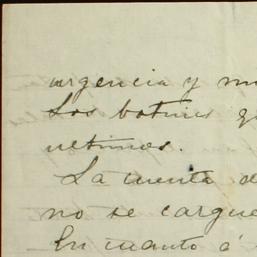 urgencia y
Los botines
ultimos.
La cuenta d
no se cargue
En cuanto á